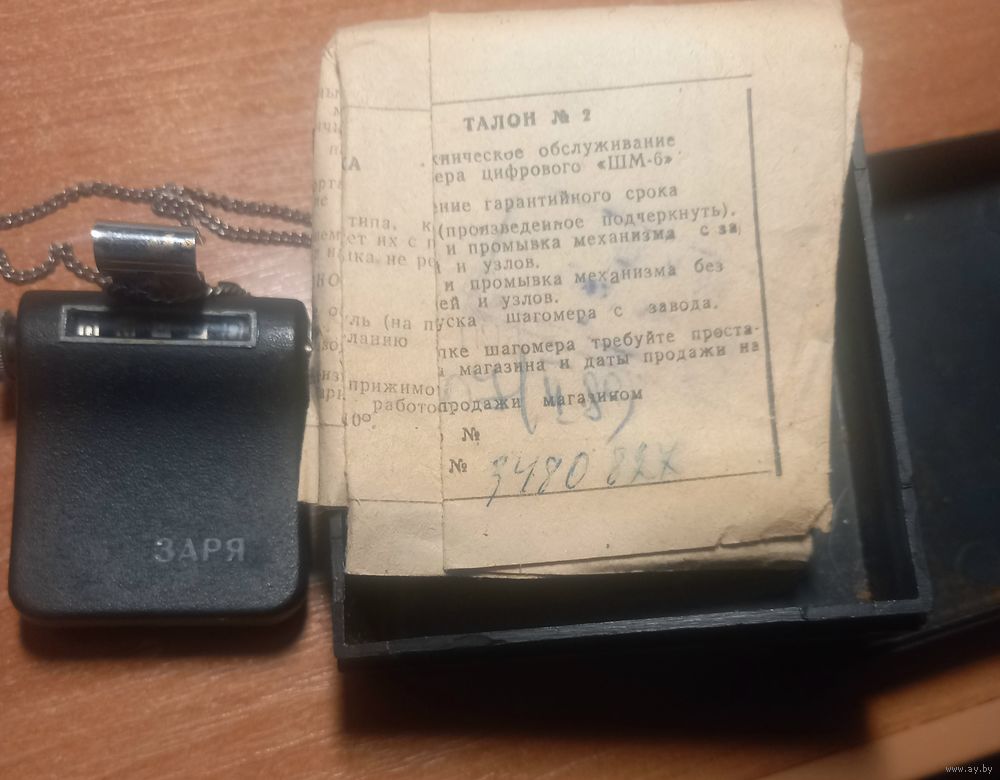 ТАЛОН № 2
ническое обслуживание
ера цифрового «ШМ-6»
ение гарантийного срока
типа, к (произведенное подчеркнуть).
ет их с п и промывка механизма с за
ка не ре и узлов.
и промывка механизма без
ей и узлов.
ль (на пуска шагомера с завода.
ланию пке шагомера требуйте проста-
а магазина и даты продажи на
прижимо
работо продажи магазином
10°.
№
№ 3480 827
ЗАРЯ
www.ay.by